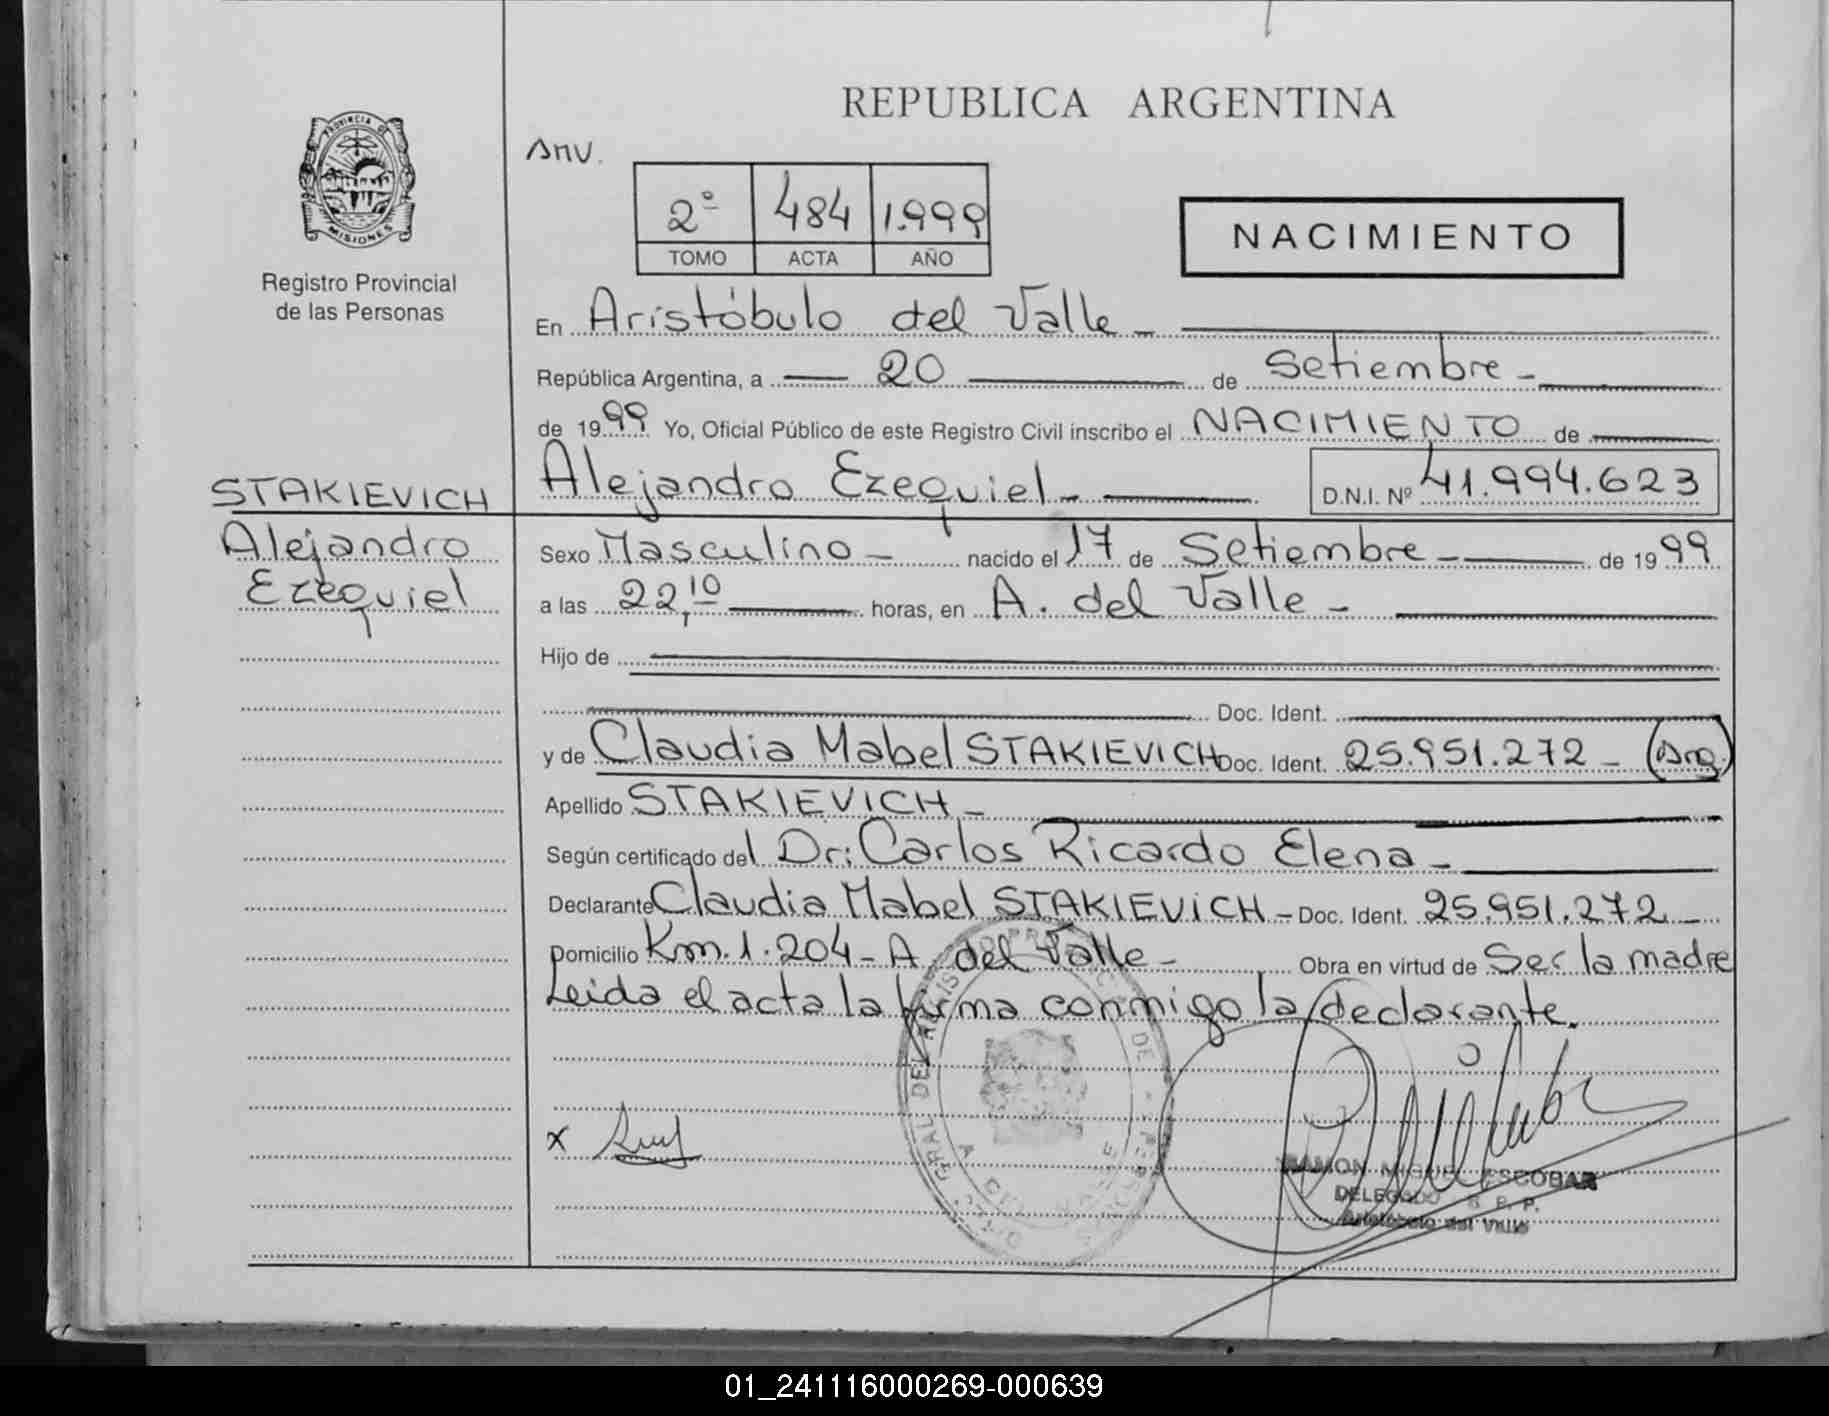 REPUBLICA ARGENTINA
PROVINCIA DE
MISIONES
Registro Provincial
de las Personas
2º 484 1.999
TOMO ACTA AÑO
NACIMIENTO
En Aristóbulo del Valle -
República Argentina, a 20 de Setiembre -
de 1999 Yo, Oficial Público de este Registro Civil inscribo el NACIMIENTO de
STAKIEVICH
Alejandro
Ezequiel
Alejandro Ezequiel - D.N.I. Nº 41.994.623
Sexo Masculino - nacido el 17 de Setiembre - de 1999
a las 22,10 horas, en A. del Valle -
Hijo de
Doc. Ident.
y de Claudia Mabel STAKIEVICH Doc. Ident. 25.951.272 - (Arg.)
Apellido STAKIEVICH -
Según certificado del Dr: Carlos Ricardo Elena -
Declarante Claudia Mabel STAKIEVICH - Doc. Ident. 25.951.272 -
Domicilio Km. 1.204 - A. del Valle - Obra en virtud de Ser la madre
Leida el acta la firma conmigo la declarante.
x
RAMON MIGUEL ESCOBAR
DELEGADO R. P. P.
Aristóbulo del Valle
01_241116000269-000639